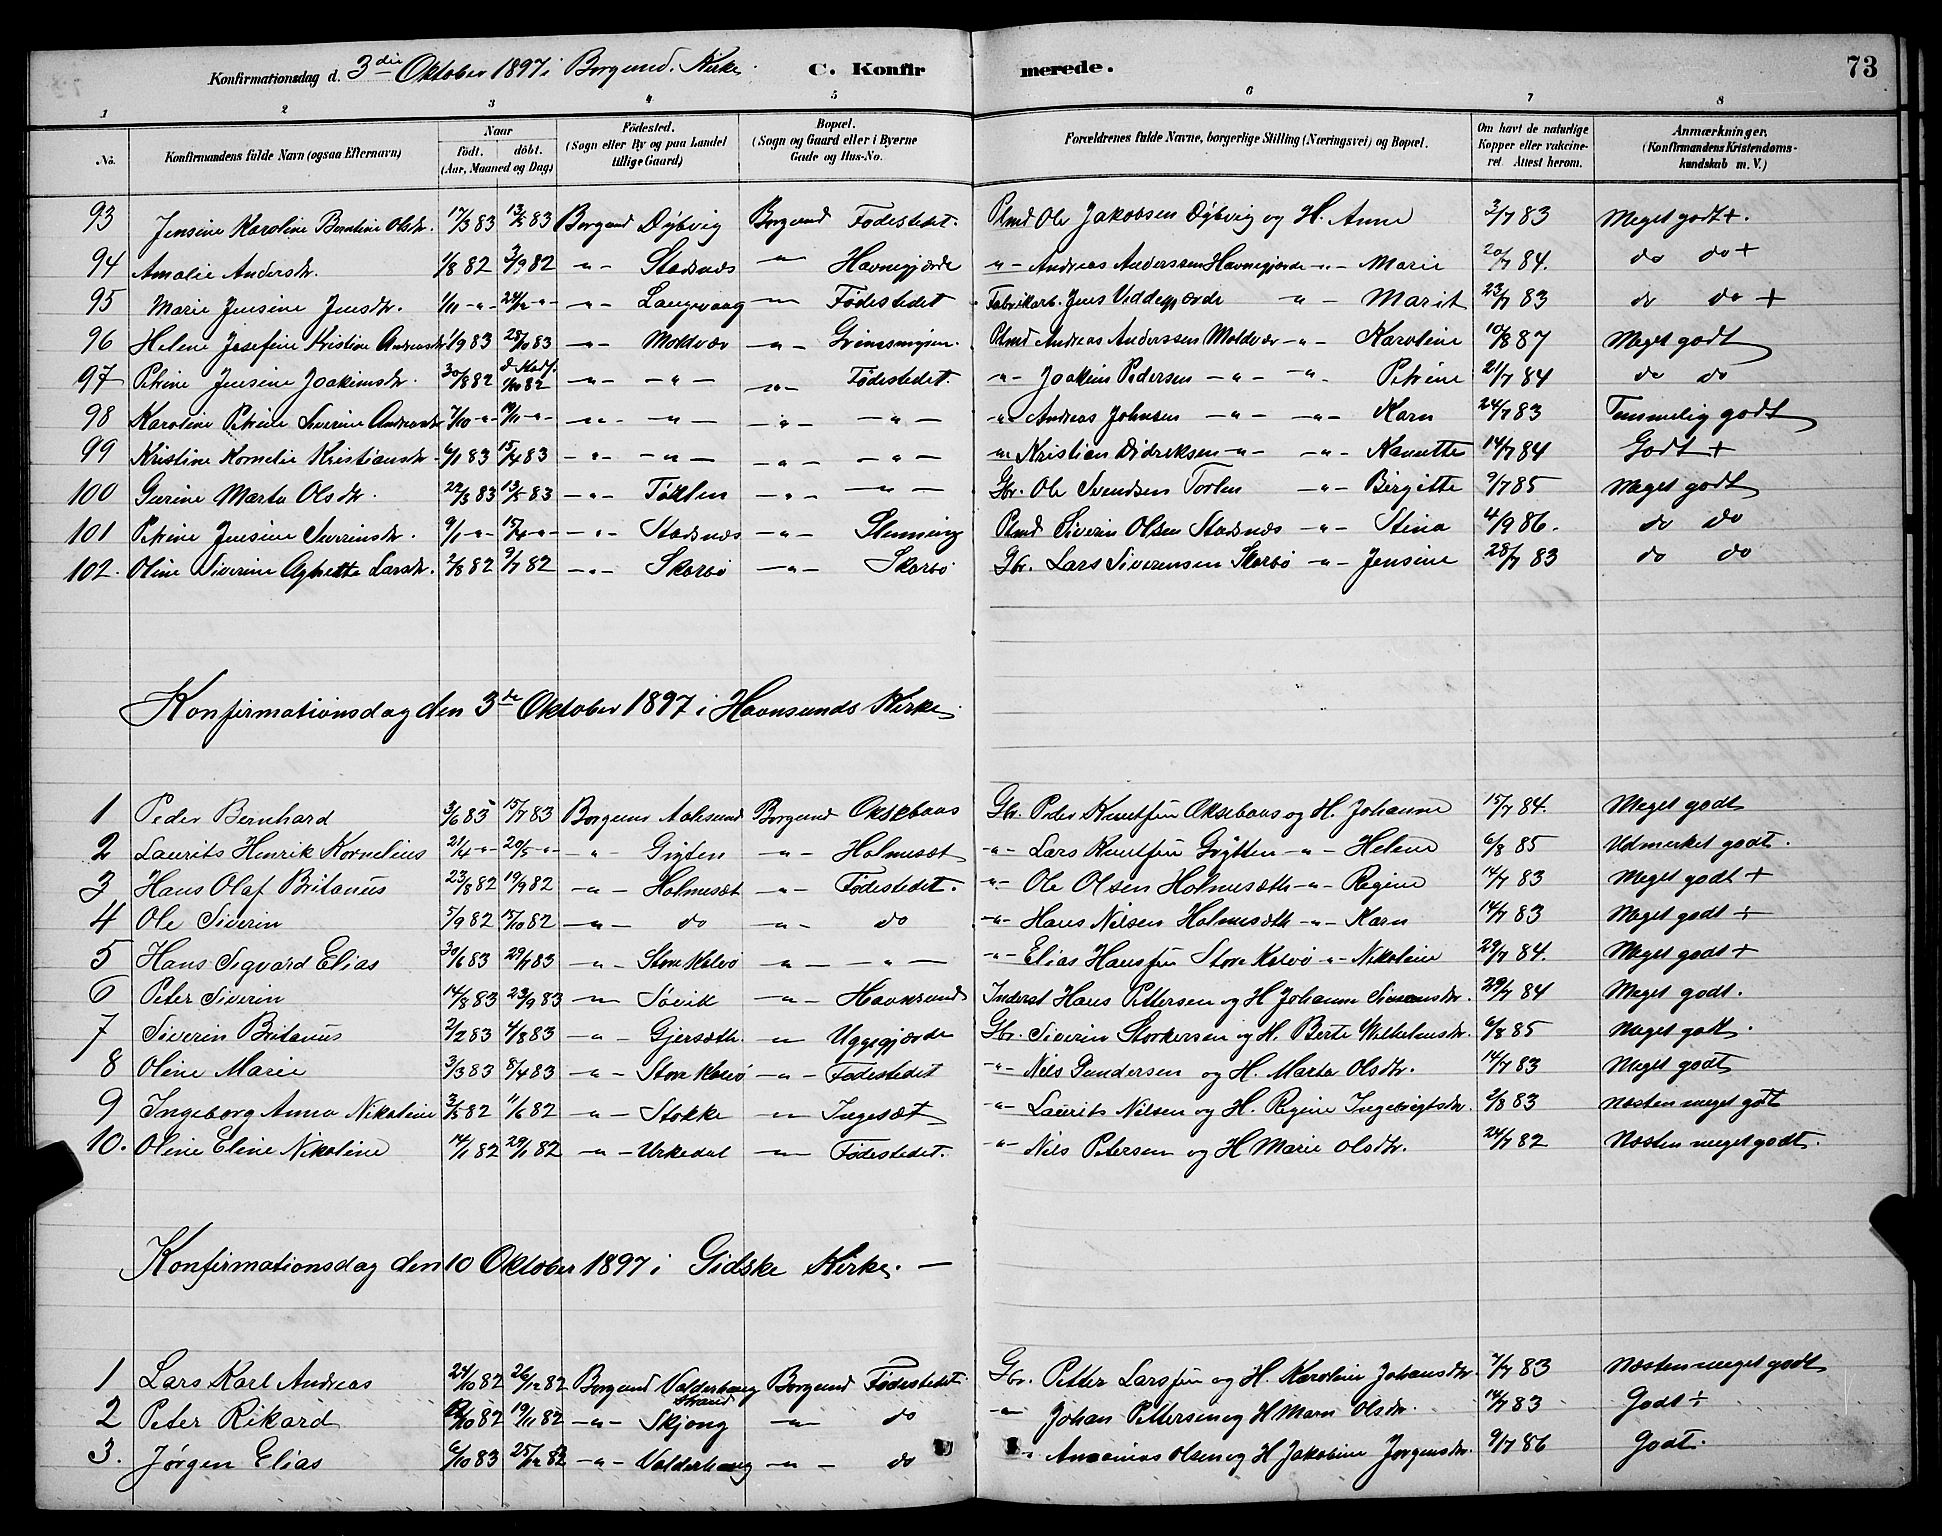 Konfirmationsdag d. 3die Oktober 1897 i Borgund Kirke. C. Konfirmerede. 73
1 2 3 4 5 6 7 8
No. Konfirmandens fulde Navn (ogsaa Efternavn) Naar født, døbt. (Aar, Maaned og Dag) Fødested. (Sogn eller By og paa Landet tillige Gaard) Bopæl. (Sogn og Gaard eller i Byerne Gade og Hus-No. Forældrenes fulde Navne, borgerlige Stilling (Næringsvei) og Bopæl. Om havt de naturlige Kopper eller vakcineret. Attest herom. Anmærkninger. (Konfirmandens Kristendomskundskab m. V.)
93 Jensine Karoline Berntine Olsdr. 17/3 83 13/5 83 Borgund Dybvig Borgund Fødestedet. Plmd Ole Jakobsen Dybvig og H. Anne 3/7 83 Meget godt +.
94 Amalie Andersdr. 1/8 82 3/9 82 -"- Stadsnæs -"- Havnegjærde -"- Andreas Anderssen Havnegjærde -"- Marie 20/7 84. do do +
95 Marie Jensine Jensdr. 1/11 -"- 24/12 -"- -"- Langevaag -"- Fødestedet Fabrikarb. Jens Veddegjærde -"- Marit 23/7 83 do do +
96 Helene Josefine Kristine Andreasdr. 1/9 83 28/10 83 -"- Moldvær -"- Grimsmyren. Plmd Andreas Anderssen Moldvær -"- Karoline 10/8 87 Meget godt
97 Petrine Jensine Joakimsdr. 30/8 82 1/10 82 -"- -"- -"- Fødestedet. -"- Joakim Pedersen -"- -"- Petrine 21/7 84 do do
98 Karoline Petrine Severine Andreasdr. 7/10 -"- 19/11 -"- -"- -"- -"- -"- -"- Andreas Johnsen -"- -"- Karn 24/7 83 Temmelig godt
99 Kristine Kornelie Kristiansdr. 6/1 83 15/4 83 -"- -"- -"- -"- -"- Kristian Didriksen -"- -"- Nanette 14/7 84 Godt +
100 Gurine Marta Olsdr. 22/3 83 13/5 83 -"- Tørlen -"- -"- Gbr. Ole Svendsen Torlen -"- Birgitte 9/7 85 Meget godt
101 Petrine Jensine Severinsdr. 9/1 -"- 15/4 -"- -"- Stadsnæs -"- Slinning Plmd Siverin Olsen Stadsnæs -"- Stina 4/9 86. do do
102. Oline Siverine Agnette Larsdr. 2/8 82 9/7 82 -"- Skorbø -"- Skorbø Gbr. Lars Siverensen Skorbø -"- Jensine 28/7 83 do do
Konfirmationsdag den 3de Oktober 1897 i Havnsunds Kirke.
1 Peder Bernhard 3/6 83 15/7 83 Borgund Aalesund Borgund Oksebaas Gbr. Peder Knutsen Oksebaas og H. Johanne 15/7 84. Meget godt
2 Laurits Henrik Kornelius 21/4 -"- 20/5 -"- -"- Gigten -"- Holmesæt -"- Lars Knutsen Grytten -"- Helene 6/8 85 Udmerket godt.
3 Hans Olaf Britanus 23/8 82 19/9 82 -"- Holmesæt -"- Fødestedet. -"- Ole Olsen Holmesæth -"- Regine 14/7 83 Meget godt +
4 Ole Siverin 5/9 82 15/10 82 -"- do -"- do -"- Hans Nilsen Holmesæth -"- Karn 14/7 83 Meget godt ÷
5 Hans Sigvard Elias 30/6 83 29/7 83 -"- Store Kalvø -"- -"- -"- Elias Hansen Store Kalvø -"- Nikoline 29/7 84. Meget godt +
6 Peter Siverin 14/8 83 23/9 83 -"- Søvik -"- Havnsund Inderst Hans Pettersen og H Johanne Simensdr. 29/7 84 Meget godt.
7 Siverin Britanus 2/2 83 4/8 83 -"- Gjersæth. -"- Uggegjærde Gbr. Siverin Storkersen og H. Berte Wilhelmsdr. 6/8 85 Meget godt.
8 Oline Marie 3/3 83 8/4 83 -"- Store Kalvø -"- Fødestedet -"- Nils Gundersen og H. Marta Olsdr. 14/7 83 Meget godt
9 Ingeborg Anna Nikoline 3/5 82 11/6 82 -"- Stokke -"- Ingesæt -"- Laurits Nilsen og H. Regine Ingebrigtsdr. 2/8 83 Næsten meget godt
10. Oline Eline Nikoline 14/1 82 29/1 82 -"- Urkedal -"- Fødestedet. -"- Nils Petersen og H Marie Olsdr. 24/7 82 Næsten meget godt.
Konfirmationsdag den 10 Oktober 1897 i Gidske Kirke. —
1 Lars Karl Andreas 24/10 82 26/12 82 Borgund Valderhaug Strand Borgund Fødestedet. Gbr. Petter Larssen og H. Karoline Johansdr. 7/7 83 Næsten meget godt
2 Peter Rikard 12/10 82 19/11 82 -"- Skjong -"- do -"- Johan Pettersen og H Marn Olsdr. 14/7 83 Godt ÷
3. Jørgen Elias 6/10 83 25/12 82 -"- Valderhaug -"- do -"- Olsen og H Jakobine Jørgensdr. 9/7 86 Godt.